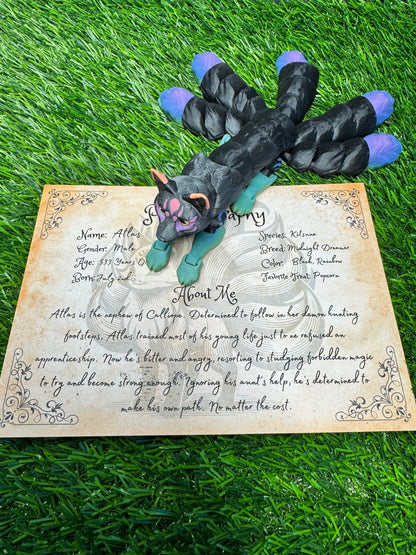 Name: Atlas
Species: Kitsune
Gender: Male
Breed: Midnight Dreamer
Age: 333 Years
Color: Black, Rainbow
Born: July 2nd
Favorite Treat: Popcorn
About Me
Atlas is the nephew of Calliope. Determined to follow in her demon hunting
footsteps, Atlas trained most of his young life just to be refused an
apprenticeship. Now he's bitter and angry, resorting to studying forbidden magic
to try and become strong enough. Ignoring his aunt's help, he's determined to
make his own path. No matter the cost.